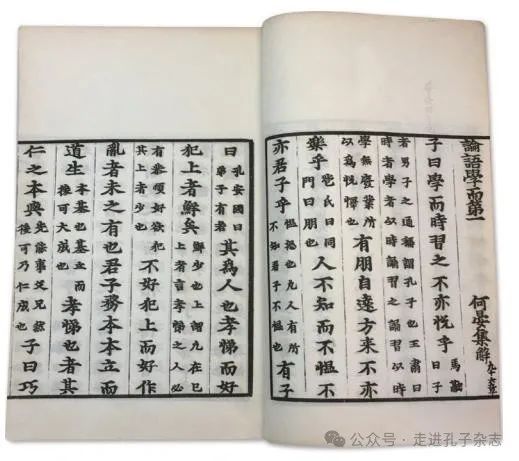 論語學而第一 何晏集解
子曰學而時習之不亦悅乎 馬融曰子
者男子之通稱謂孔子也王肅曰
時者學者以時誦習之誦習以時
學無廢業所以為悅懌也 有朋自遠方來不亦
樂乎 苞氏曰同門曰朋也 人不知而不慍不
亦君子乎 慍怒也凡人有所不知君子不慍也 有子
曰 孔安國曰弟子有若 其為人也孝悌而好
犯上者鮮矣 鮮少也上謂凡在已上者言孝悌之人必
有恭順好欲犯其上者少也 不好犯上而好作
亂者未之有也君子務本本立而
道生 本基也基立而後可大成也 孝悌也者其
仁之本與 先能事父兄然後可乃仁成也 子曰巧
公众号·走进孔子杂志